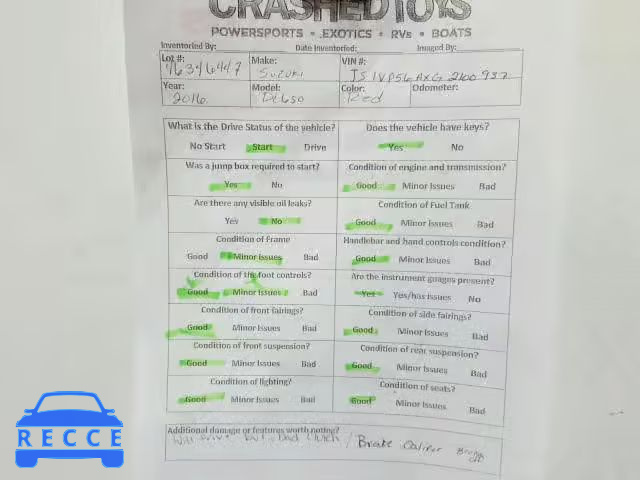 CRASHEDTOYS
POWERSPORTS • EXOTICS • RVs • BOATS
Inventoried By: Date Inventoried: Imaged By:
Lot #: 46346447 Make: Suzuki VIN #: JS1VP56AXG2100937
Year: 2016 Model: DL650 Color: Red Odometer:
What is the Drive Status of the vehicle? Does the vehicle have keys?
No Start Start Drive Yes No
Was a jump box required to start? Condition of engine and transmission?
Yes No Good Minor Issues Bad
Are there any visible oil leaks? Condition of Fuel Tank
Yes No Good Minor Issues Bad
Condition of Frame Handlebar and hand controls condition?
Good Minor Issues Bad Good Minor Issues Bad
Condition of the foot controls? Are the instrument guages present?
Good Minor Issues Bad Yes Yes/has issues No
Condition of front fairings? Condition of side fairings?
Good Minor Issues Bad Good Minor Issues Bad
Condition of front suspension? Condition of rear suspension?
Good Minor Issues Bad Good Minor Issues Bad
Condition of lighting? Condition of seats?
Good Minor Issues Bad Good Minor Issues Bad
Additional damage or features worth noting?
Will Drive but Bad Clutch / Brake Caliper
RECCE